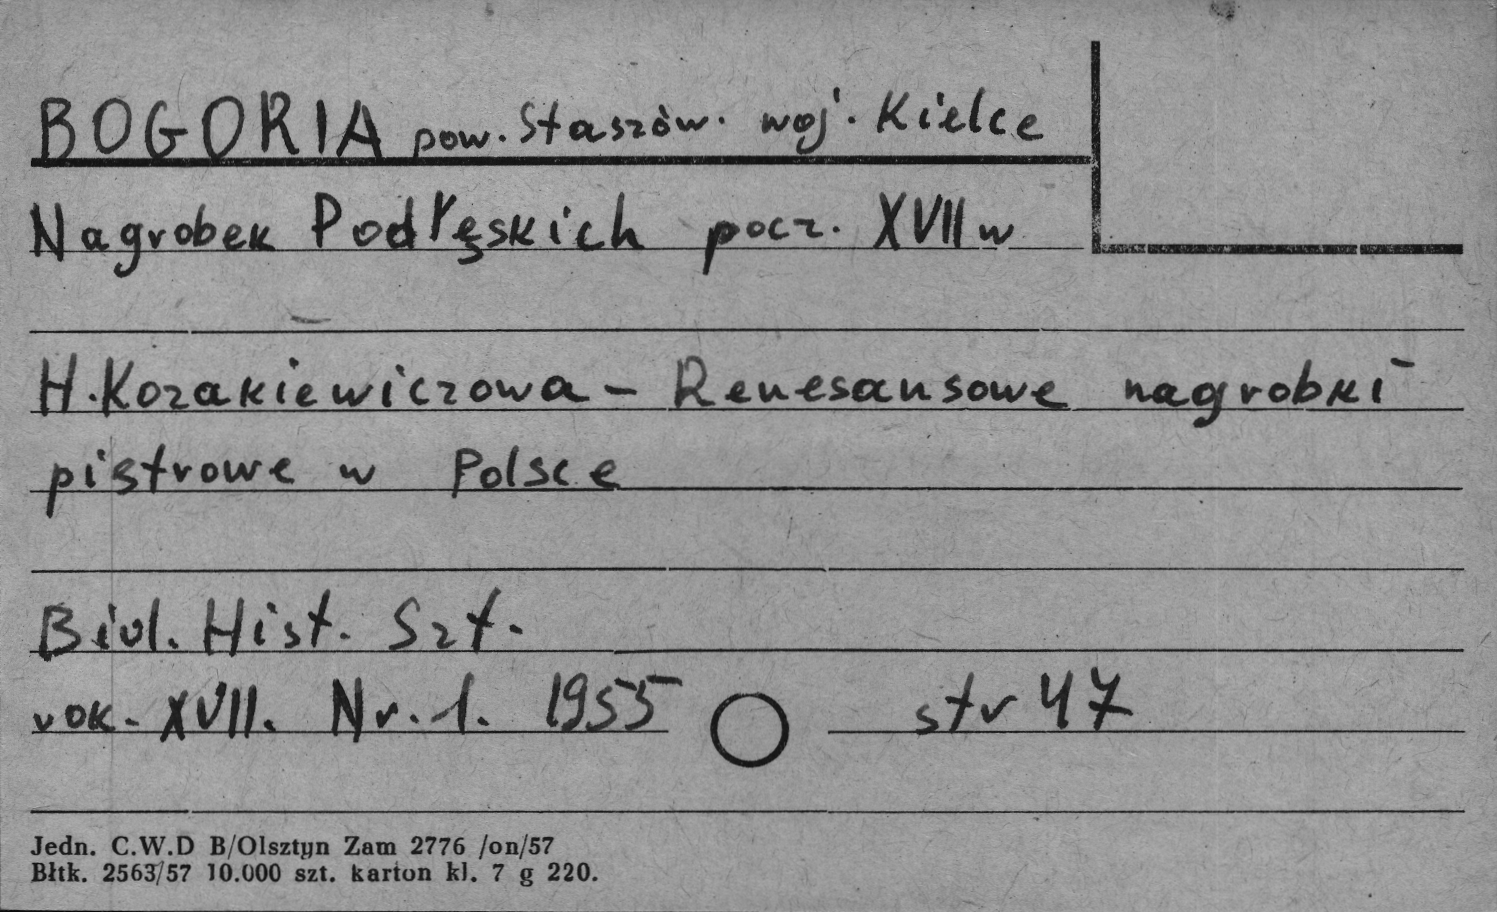 BOGORIA pow. Staszów. woj. Kielce
Nagrobek Podłęskich pocz. XVII w
H. Kozakiewiczowa - Renesansowe nagrobki
piętrowe w Polsce
Biul. Hist. Szt.
rok. XVII. Nr. 1. 1955 str 47
Jedn. C.W.D B/Olsztyn Zam 2776 /on/57
Błtk. 2563/57 10.000 szt. karton kl. 7 g 220.